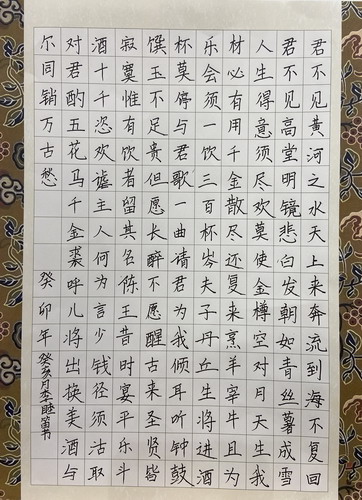 君不见黄河之水天上来奔流到海不复回
君不见高堂明镜悲白发朝如青丝薯成雪
人生得意须尽欢莫使金樽空对月天生我
材必有用千金散尽还复来烹羊宰牛且为
乐会须一饮三百杯岑夫子丹丘生将进酒
杯莫停与君歌一曲请君为我倾耳听钟鼓
馔玉不足贵但愿长醉不愿醒古来圣贤皆
寂寞惟有饮者留其名陈王昔时宴平乐斗
酒十千恣欢谑主人何为言少钱径须沽取
对君酌五花马千金裘呼儿将出换美酒与
尔同销万古愁 癸卯年 癸亥月李睦笛书